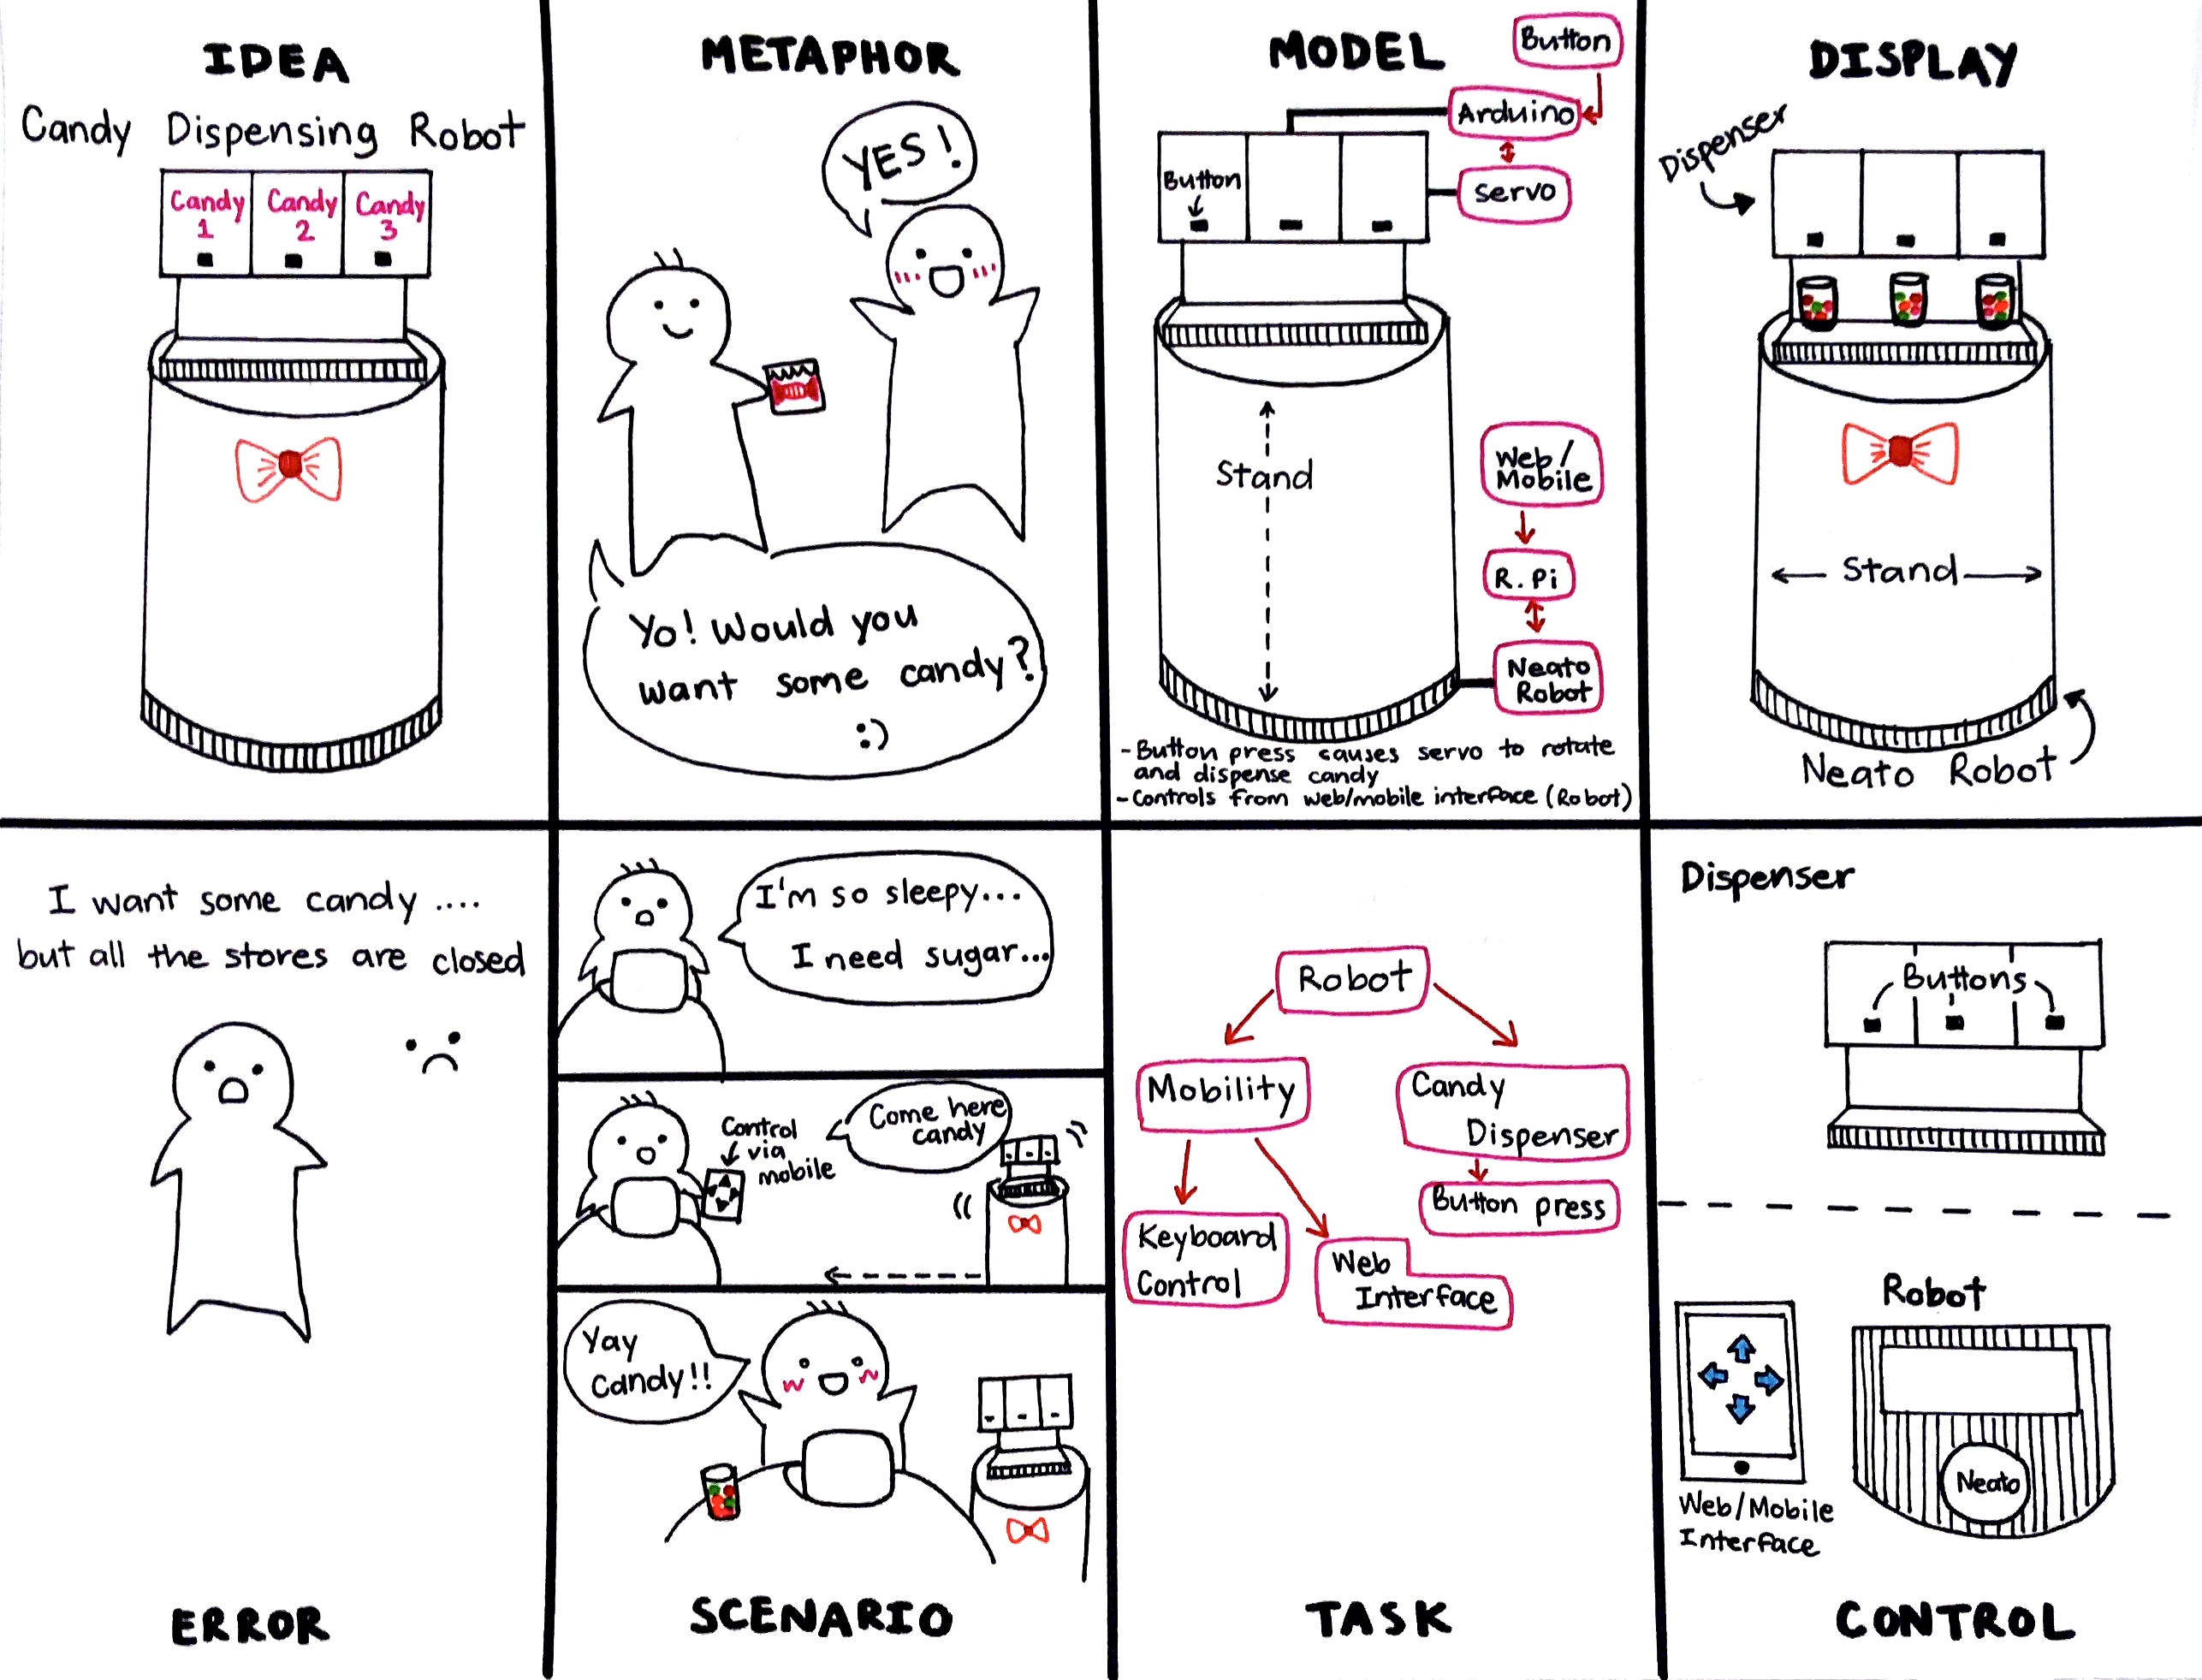 IDEA
Candy Dispensing Robot
Candy
1
Candy
2
Candy
3
METAPHOR
YES!
Yo! Would you
want some candy?
:)
MODEL
Button
Arduino
servo
Button
Stand
Web/
Mobile
R. Pi
Neato
Robot
- Button press causes servo to rotate
and dispense candy
- Controls from web/mobile interface (Robot)
DISPLAY
Dispenser
Stand
Neato Robot
I want some candy ....
but all the stores are closed
ERROR
I'm so sleepy...
I need sugar...
Control
via
mobile
Come here
candy
Yay
Candy!!
SCENARIO
Robot
Mobility
Candy
Dispenser
Button press
Keyboard
Control
Web
Interface
TASK
Dispenser
Buttons
Robot
Neato
Web/Mobile
Interface
CONTROL